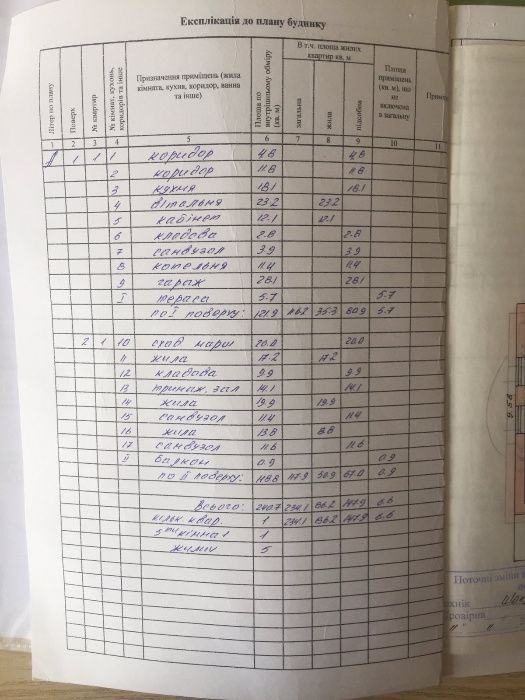 Експлікація до плану будинку
Літер по плану
Поверх
№ квартир
№ кімнат, кухонь, коридорів та інше
Призначення приміщень (жила кімната, кухня, коридор, ванна та інше)
Площа по внутрішньому обміру (кв. м)
В т.ч. площа жилих квартир кв. м
загальна
жила
підсобна
Площа приміщень (кв. м), що не включена в загальну
1 2 3 4 5 6 7 8 9 10 11
А 1 1 1 коридор 4.8 4.8
2 коридор 11.8 11.8
3 кухня 18.1 18.1
4 вітальня 23.2 23.2
5 кабінет 12.1 12.1
6 кладова 2.8 2.8
7 санвузол 3.9 3.9
8 котельня 11.4 11.4
9 гараж 28.1 28.1
I тераса 5.7 5.7
по I поверху: 121.9 116.2 35.3 80.9 5.7
2 1 10 схов марш 20.0 20.0
11 жила 17.2 17.2
12 кладова 9.9 9.9
13 тринаж. зал 14.1 14.1
14 жила 19.9 19.9
15 санвузол 11.4 11.4
16 жила 13.8 13.8
17 санвузол 11.6 11.6
II балкон 0.9 0.9
по II поверху: 118.8 117.9 50.9 67.0 0.9
Всього: 240.7 234.1 86.2 147.9 6.6
кільк. квар 1 234.1 86.2 147.9 6.6
5ти кімна 1
жилих 5
9.58
Поточні зміни